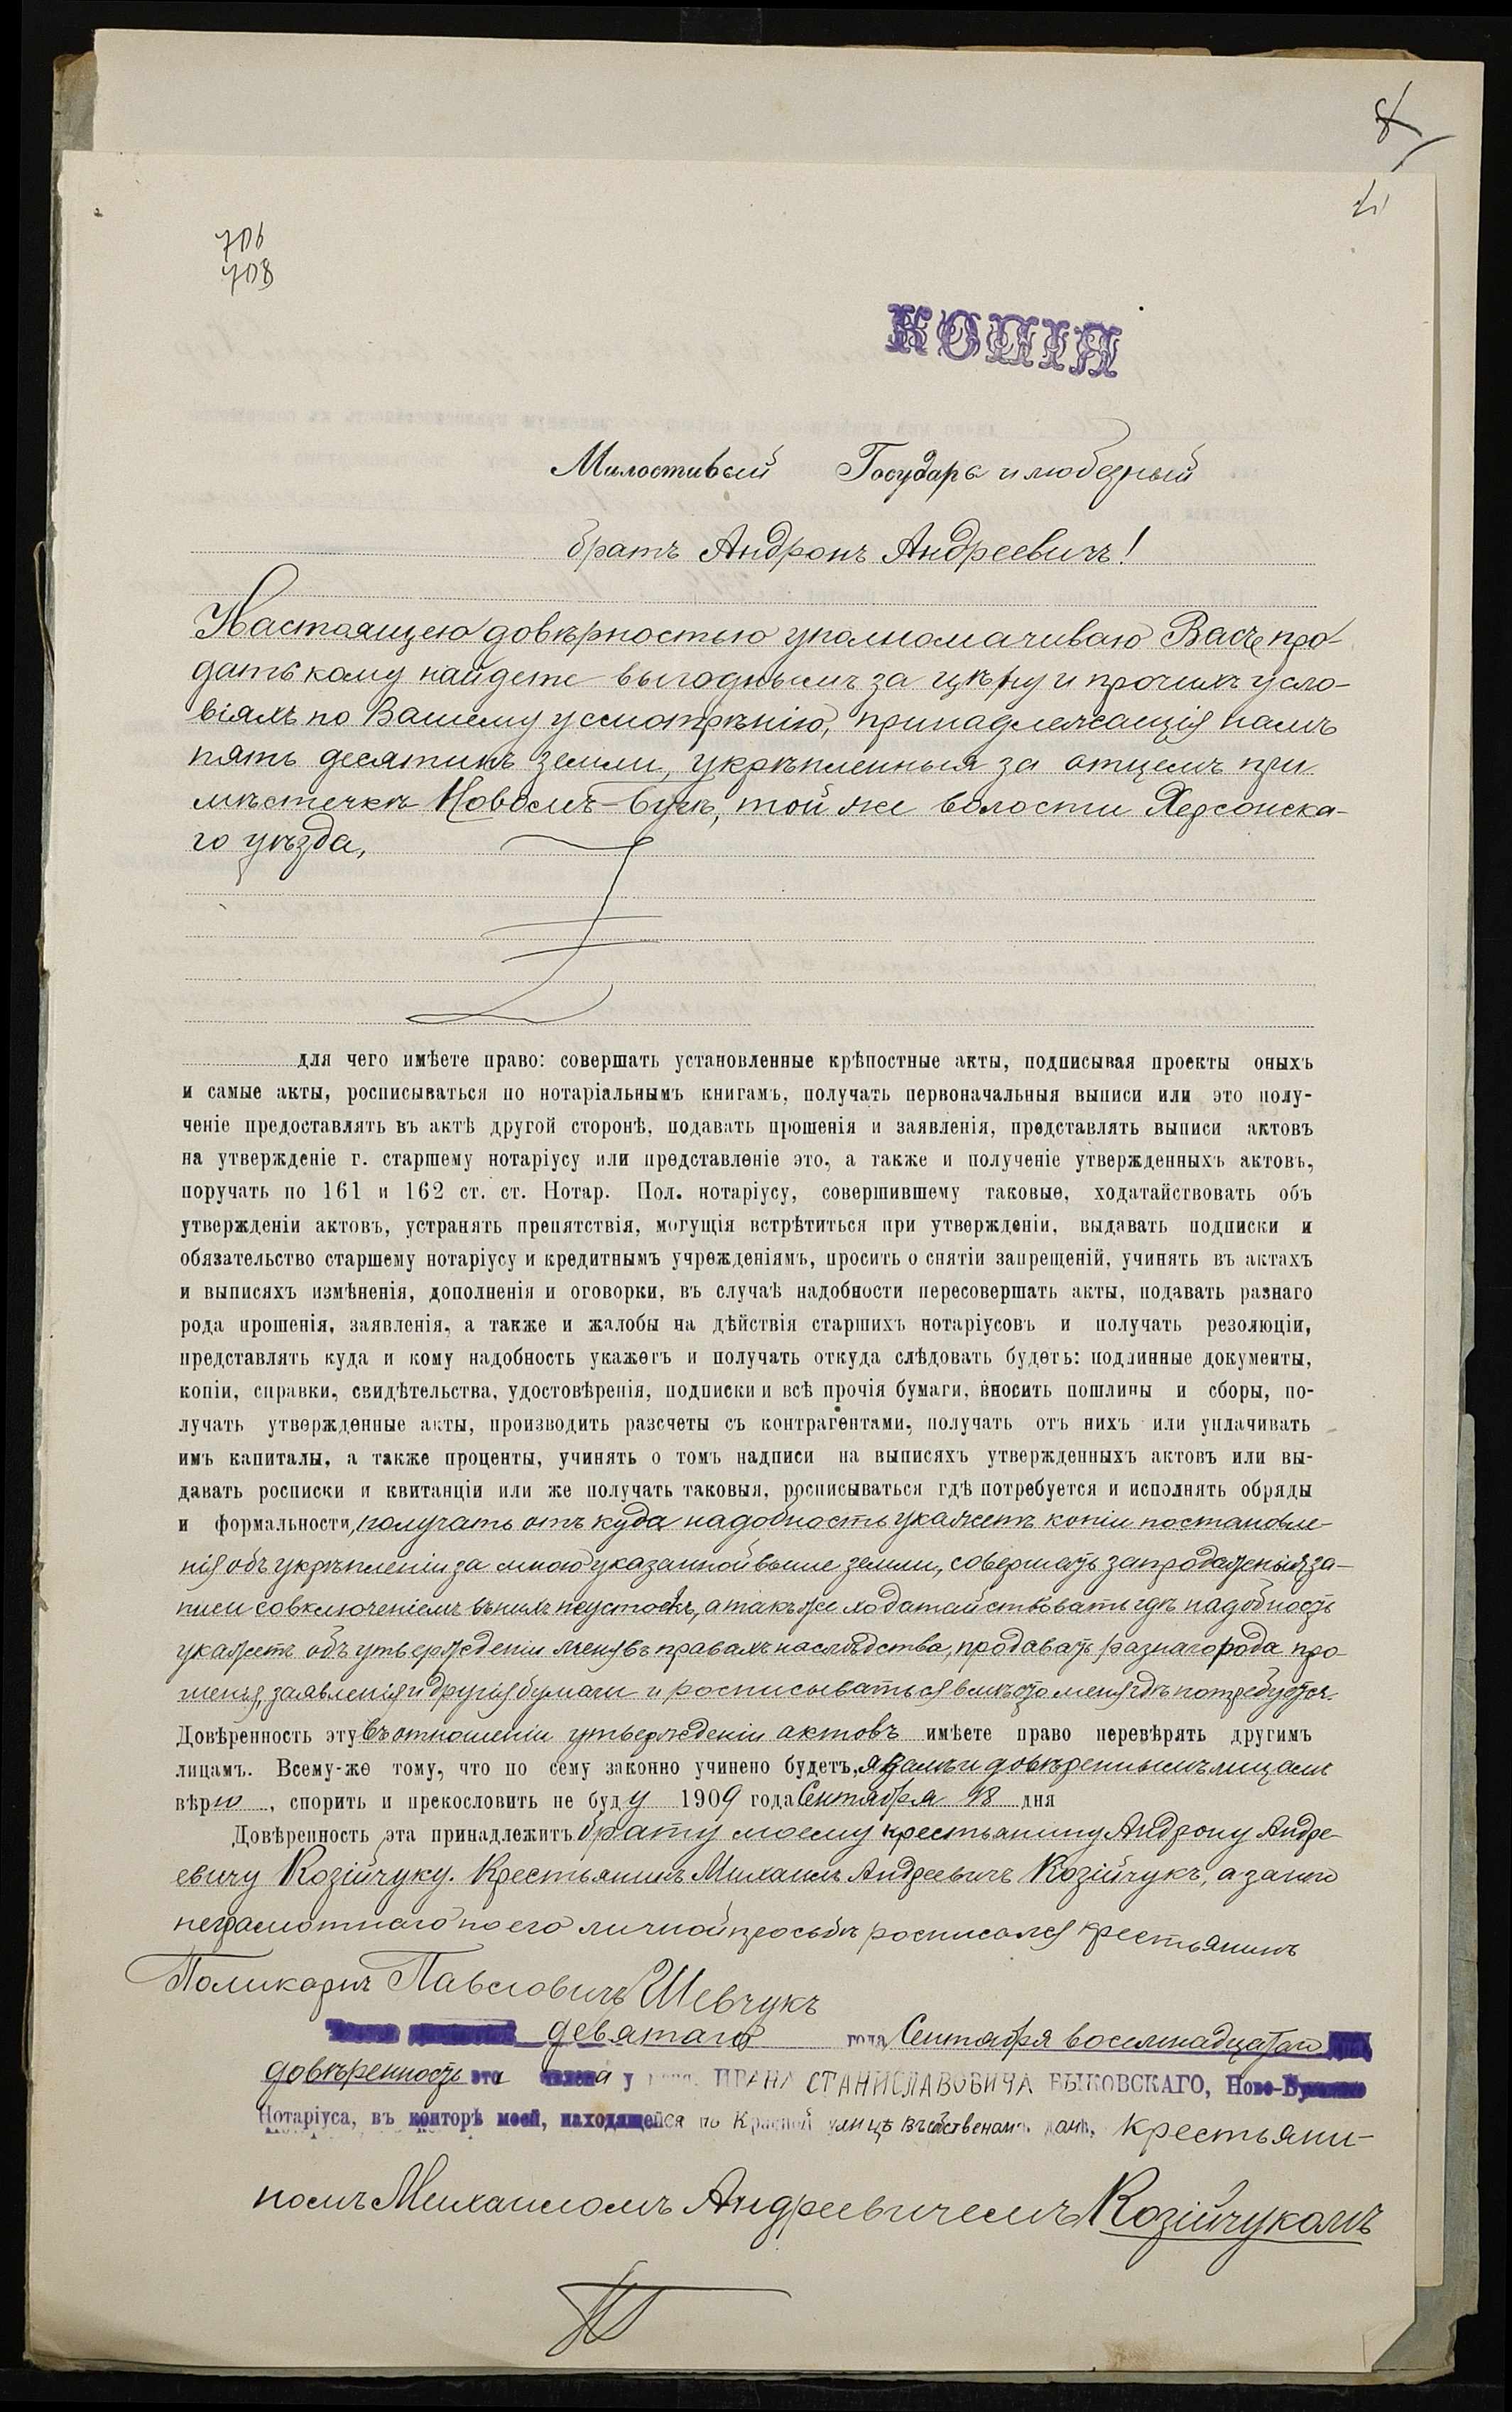 706
708
КОПІЯ
Милостивый Государь и любезный
братъ Андронъ Андреевичъ!
Настоящею довѣрностью уполномачиваю Васъ про-
дать кому найдете выгоднымъ за цѣну и прочимъ усло-
віямъ по Вашему усмотрѣнію, принадлежащія намъ
пять десятинъ земли, укрѣпленныя за отцемъ при
мѣстечкѣ Новомъ-Бугѣ, той же волости Херсонска-
го уѣзда,
для чего имѣете право: совершать установленные крѣпостные акты, подписывая проекты оныхъ
и самые акты, росписываться по нотаріальнымъ книгамъ, получать первоначальныя выписи или это полу-
ченіе предоставлять въ актѣ другой сторонѣ, подавать прошенія и заявленія, представлять выписи актовъ
на утвержденіе г. старшему нотаріусу или представленіе это, а также и полученіе утвержденныхъ актовъ,
поручать по 161 и 162 ст. ст. Нотар. Пол. нотаріусу, совершившему таковые, ходатайствовать объ
утвержденіи актовъ, устранять препятствія, могущія встрѣтиться при утвержденіи, выдавать подписки и
обязательство старшему нотаріусу и кредитнымъ учрежденіямъ, просить о снятіи запрещеній, учинять въ актахъ
и выписяхъ измѣненія, дополненія и оговорки, въ случаѣ надобности пересовершать акты, подавать разнаго
рода прошенія, заявленія, а также и жалобы на дѣйствія старшихъ нотаріусовъ и получать резолюціи,
представлять куда и кому надобность укажетъ и получать откуда слѣдовать будетъ: подлинные документы,
копіи, справки, свидѣтельства, удостовѣренія, подписки и всѣ прочія бумаги, вносить пошлины и сборы, по-
лучать утвержденные акты, производить разсчеты съ контрагентами, получать отъ нихъ или уплачивать
имъ капиталы, а также проценты, учинять о томъ надписи на выписяхъ утвержденныхъ актовъ или вы-
давать росписки и квитанціи или же получать таковыя, росписываться гдѣ потребуется и исполнять обряды
и формальности, получать отъ куда надобность укажетъ копіи постановле-
нія объ укрѣпленіи за мною указанной выше земли, совершать запродажныя за-
писи со включеніемъ въ нихъ неустоекъ, а такъ же ходатайствовать гдѣ надобность
укажетъ объ утвержденіи меня въ правахъ наслѣдства, продавать разнаго рода про-
шенія, заявленія и другія бумаги и росписываться вмѣсто меня гдѣ потребуется.
Довѣренность эту въ отношеніи утвержденіи актовъ имѣете право перевѣрять другимъ
лицамъ. Всему-же тому, что по сему законно учинено будетъ, я Вамъ и довѣреннымъ лицамъ
вѣрю, спорить и прекословить не буду 1909 года Сентября 18 дня
Довѣренность эта принадлежитъ брату моему крестьянину Андрону Андре-
евичу Козійчуку. Крестьянинъ Михаилъ Андреевичъ Козійчукъ, а за него
неграмотнаго по его личной просьбѣ росписался крестьянинъ
Поликарпъ Павловичъ Шевчукъ
девятаго года Сентября восемнадцатаго
довѣренность эта явлена у СТАНИСЛАВОВИЧА БЫКОВСКАГО, Ново-
Нотаріуса, въ конторѣ моей, находящейся по Красной улицѣ въ собственомъ домѣ, крестьяни-
номъ Михаиломъ Андреевичемъ Козійчукомъ